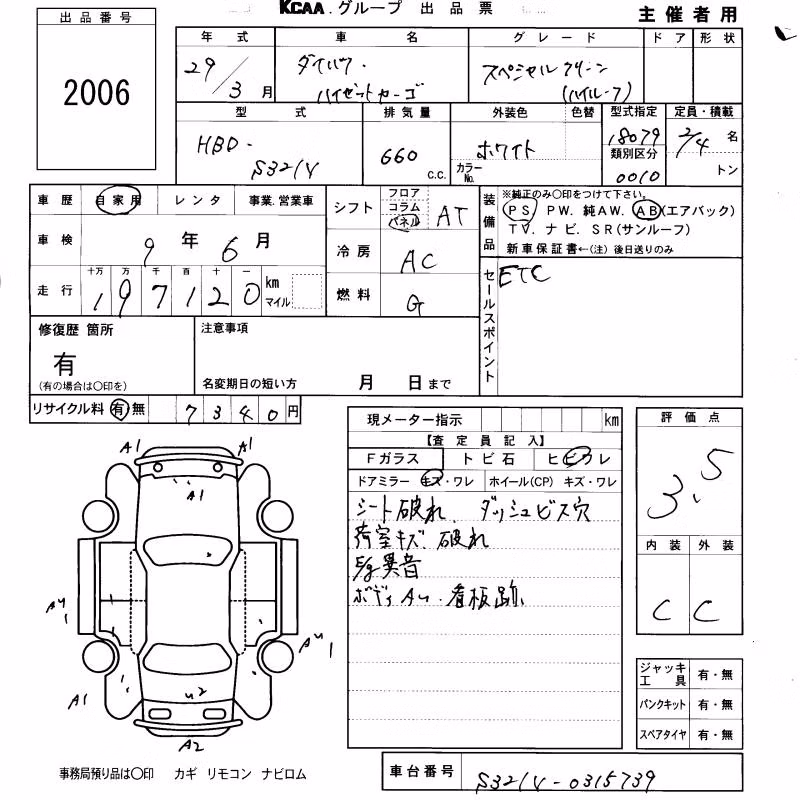 KCAA.グループ 出品票
主催者用
出品番号
2006
年式 車名 グレード ドア 形状
29/3月
ダイハツ・
ハイゼットカーゴ
スペシャルクリーン
(ハイルーフ)
型式 排気量 外装色 色替 型式指定 定員・積載
HBD-
S321V
660 c.c.
ホワイト
カラーNo.
18079
類別区分
0010
2/4 名
トン
車歴 自家用 レンタ 事業.営業車
車検 9年6月
走行 十万 万 千 百 十 一
197120 km
マイル
シフト フロア
コラム
パネル
AT
冷房 AC
燃料 G
装備品
※純正のみ○印をつけて下さい。
PS PW. 純AW. AB(エアバック)
TV. ナビ. SR(サンルーフ)
新車保証書←(注) 後日送りのみ
セールスポイント
ETC
修復歴 箇所
有
(有の場合は○印を)
注意事項
名変期日の短い方 月 日まで
リサイクル料 有 無 7340円
現メーター指示 km
【査定員記入】
Fガラス トビ石 ヒビワレ
ドアミラー キズ・ワレ ホイール(CP) キズ・ワレ
シート破れ、ダッシュビス穴
荷室キズ、破れ
E/g異音
ボディAu・看板跡、
評価点
3.5
内装 外装
C C
ジャッキ
工具 有・無
パンクキット 有・無
スペアタイヤ 有・無
A1 A1
A1
A4
1
A4 1
A1
U2
A2
事務局預り品は○印 カギ リモコン ナビロム
車台番号 S321V-0315739